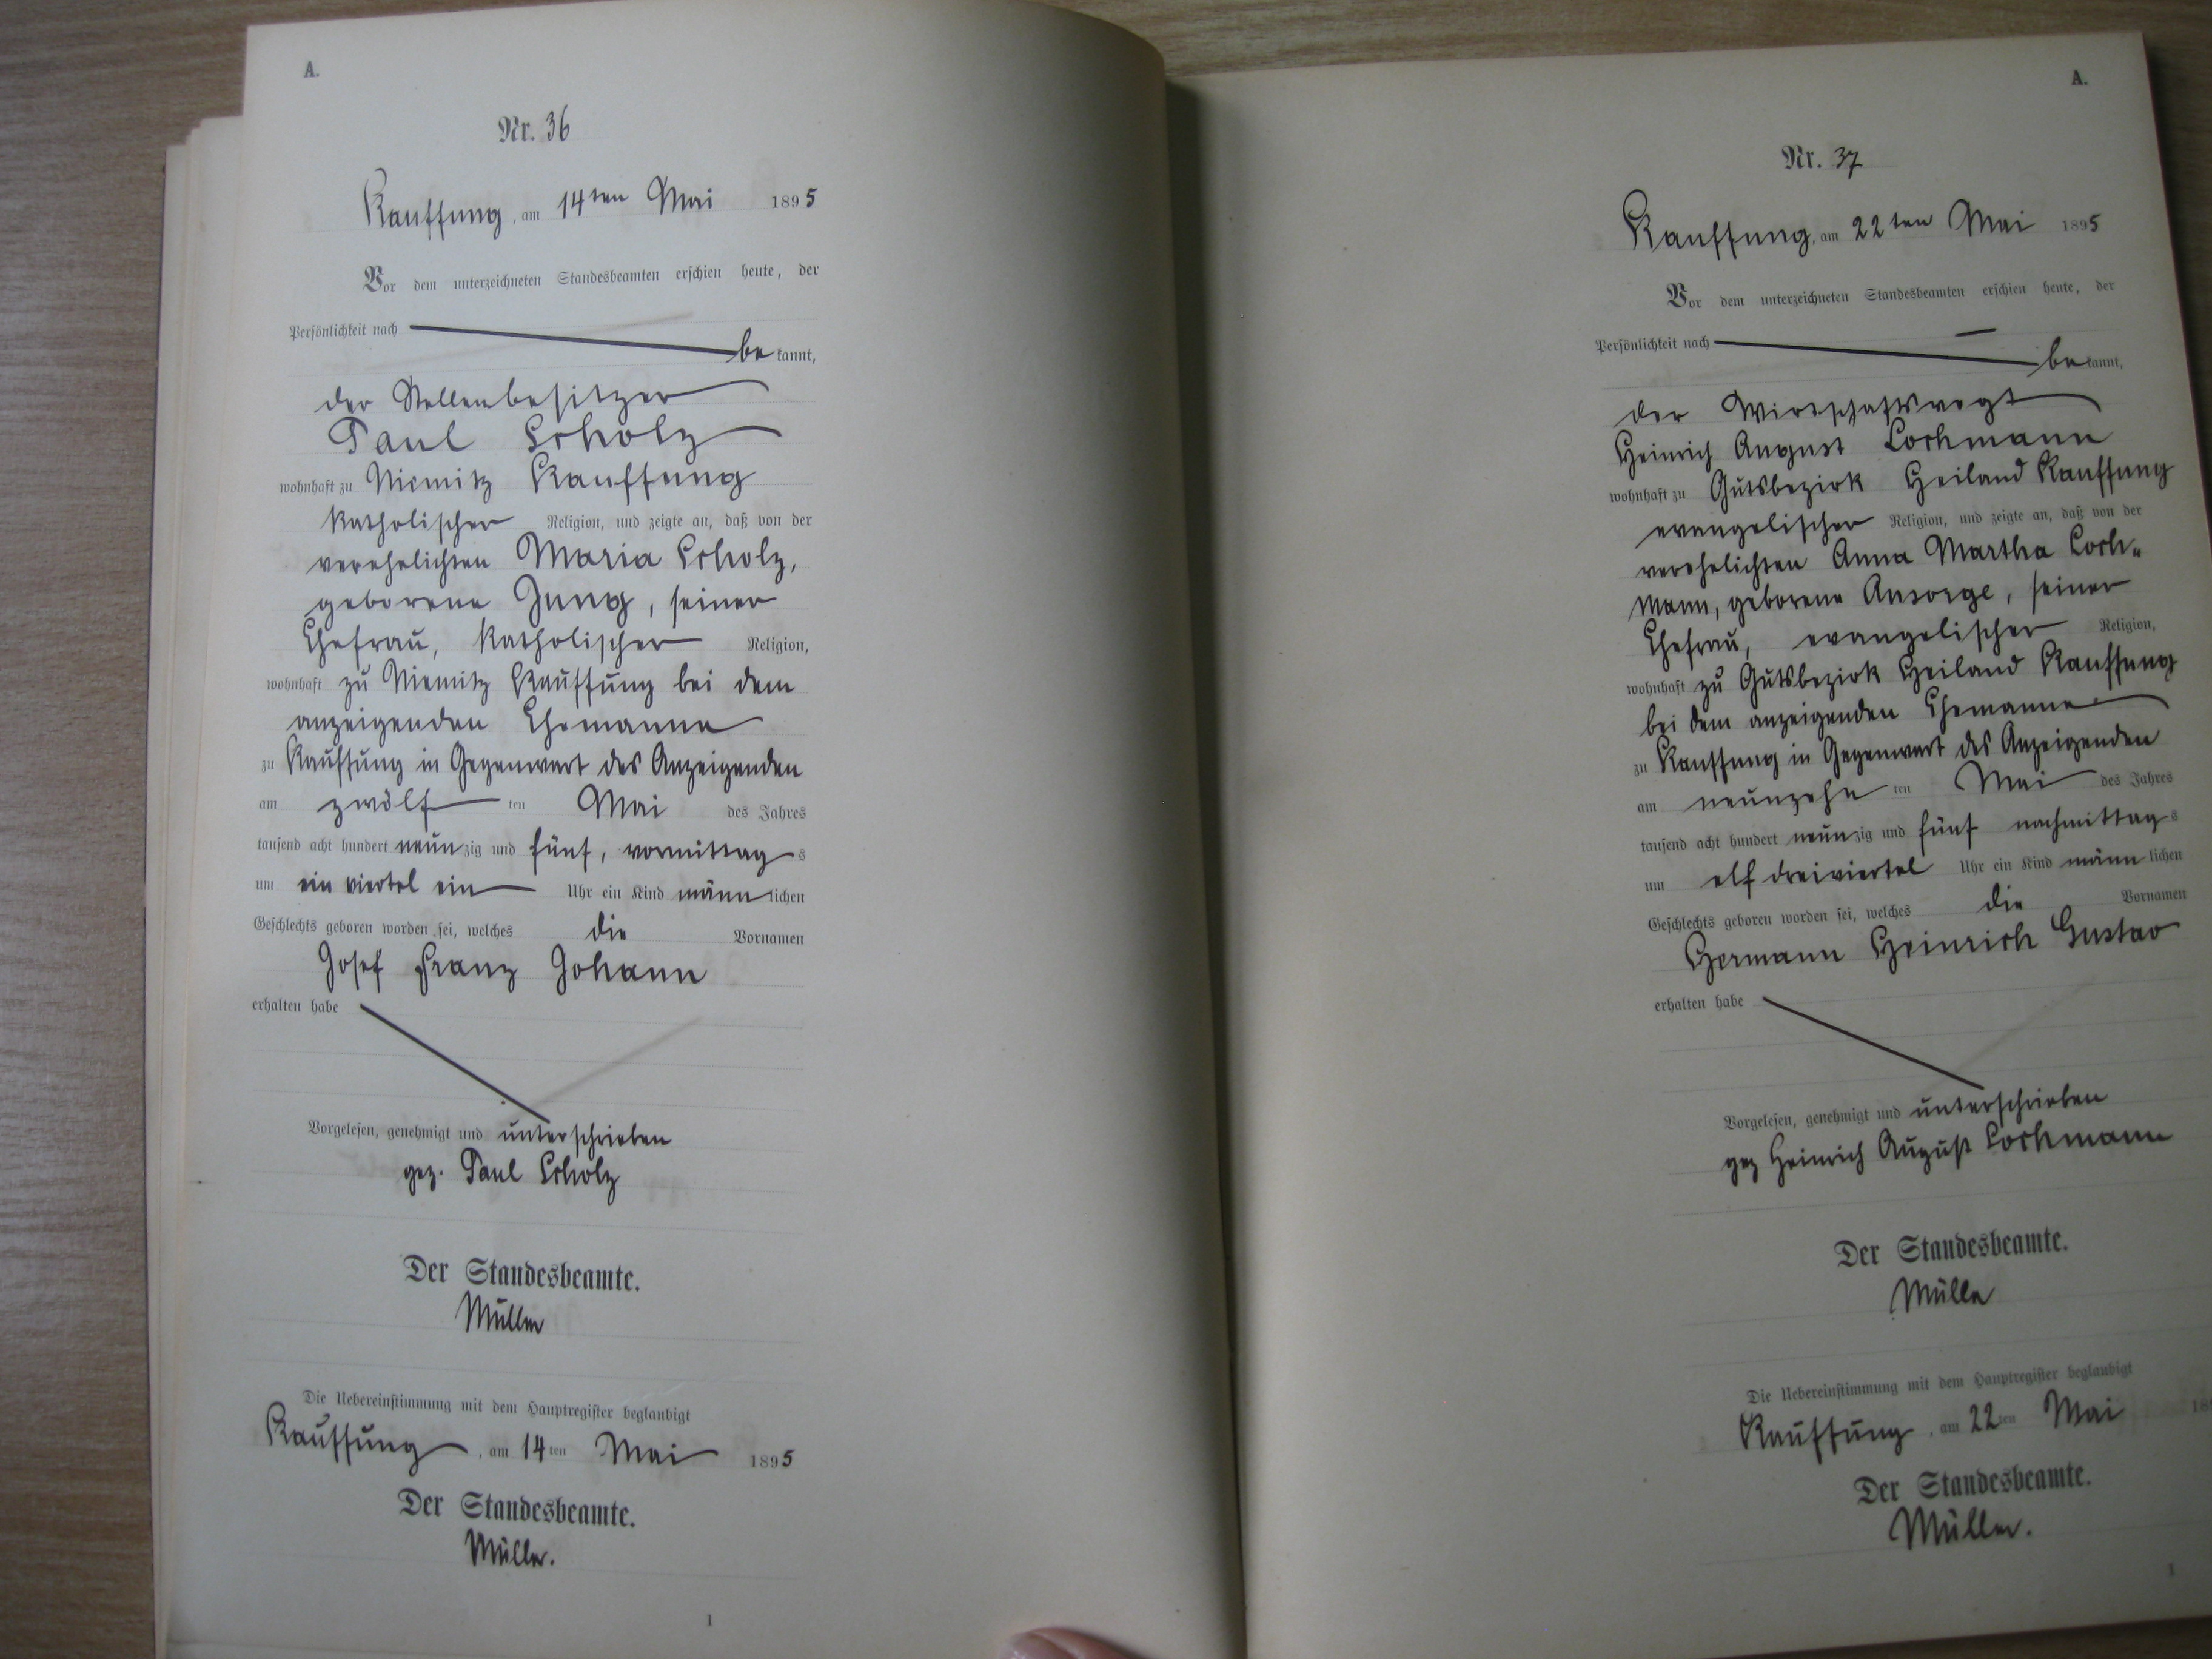 A.
Nr. 36
Kauffung, am 14ten Mai 1895
Vor dem unterzeichneten Standesbeamten erschien heute, der
Persönlichkeit nach
be kannt,
der Stellenbesitzer
Paul Scholz
wohnhaft zu Niemitz Kauffung
katholischer Religion, und zeigte an, daß von der
verehelichten Maria Scholz,
geborene Jung, seiner
Ehefrau, katholischer Religion,
wohnhaft zu Niemitz Kauffung bei dem
anzeigenden Ehemanne
zu Kauffung in Gegenwart des Anzeigenden
am zwölf ten Mai des Jahres
tausend acht hundert neunzig und fünf, vormittags
um ein viertel ein Uhr ein Kind männlichen
Geschlechts geboren worden sei, welches die Vornamen
Josef Franz Johann
erhalten habe
Vorgelesen, genehmigt und unterschrieben
gez. Paul Scholz
Der Standesbeamte.
Müller
Die Uebereinstimmung mit dem Hauptregister beglaubigt
Kauffung, am 14ten Mai 1895
Der Standesbeamte.
Müller.
1
A.
Nr. 37
Kauffung, am 22ten Mai 1895
Vor dem unterzeichneten Standesbeamten erschien heute, der
Persönlichkeit nach
be kannt,
der Wirtschaftsvogt
Heinrich August Lochmann
wohnhaft zu Gutsbezirk Heiland Kauffung
evangelischer Religion, und zeigte an, daß von der
verehelichten Anna Martha Loch-
mann, geborene Ansorge, seiner
Ehefrau, evangelischer Religion,
wohnhaft zu Gutsbezirk Heiland Kauffung
bei dem anzeigenden Ehemanne
zu Kauffung in Gegenwart des Anzeigenden
am neunzehn ten Mai des Jahres
tausend acht hundert neunzig und fünf nachmittags
um elf dreiviertel Uhr ein Kind männlichen
Geschlechts geboren worden sei, welches die Vornamen
Hermann Heinrich Gustav
erhalten habe
Vorgelesen, genehmigt und unterschrieben
gez Heinrich August Lochmann
Der Standesbeamte.
Müller
Die Uebereinstimmung mit dem Hauptregister beglaubigt
Kauffung, am 22ten Mai 189
Der Standesbeamte.
Müller.
1